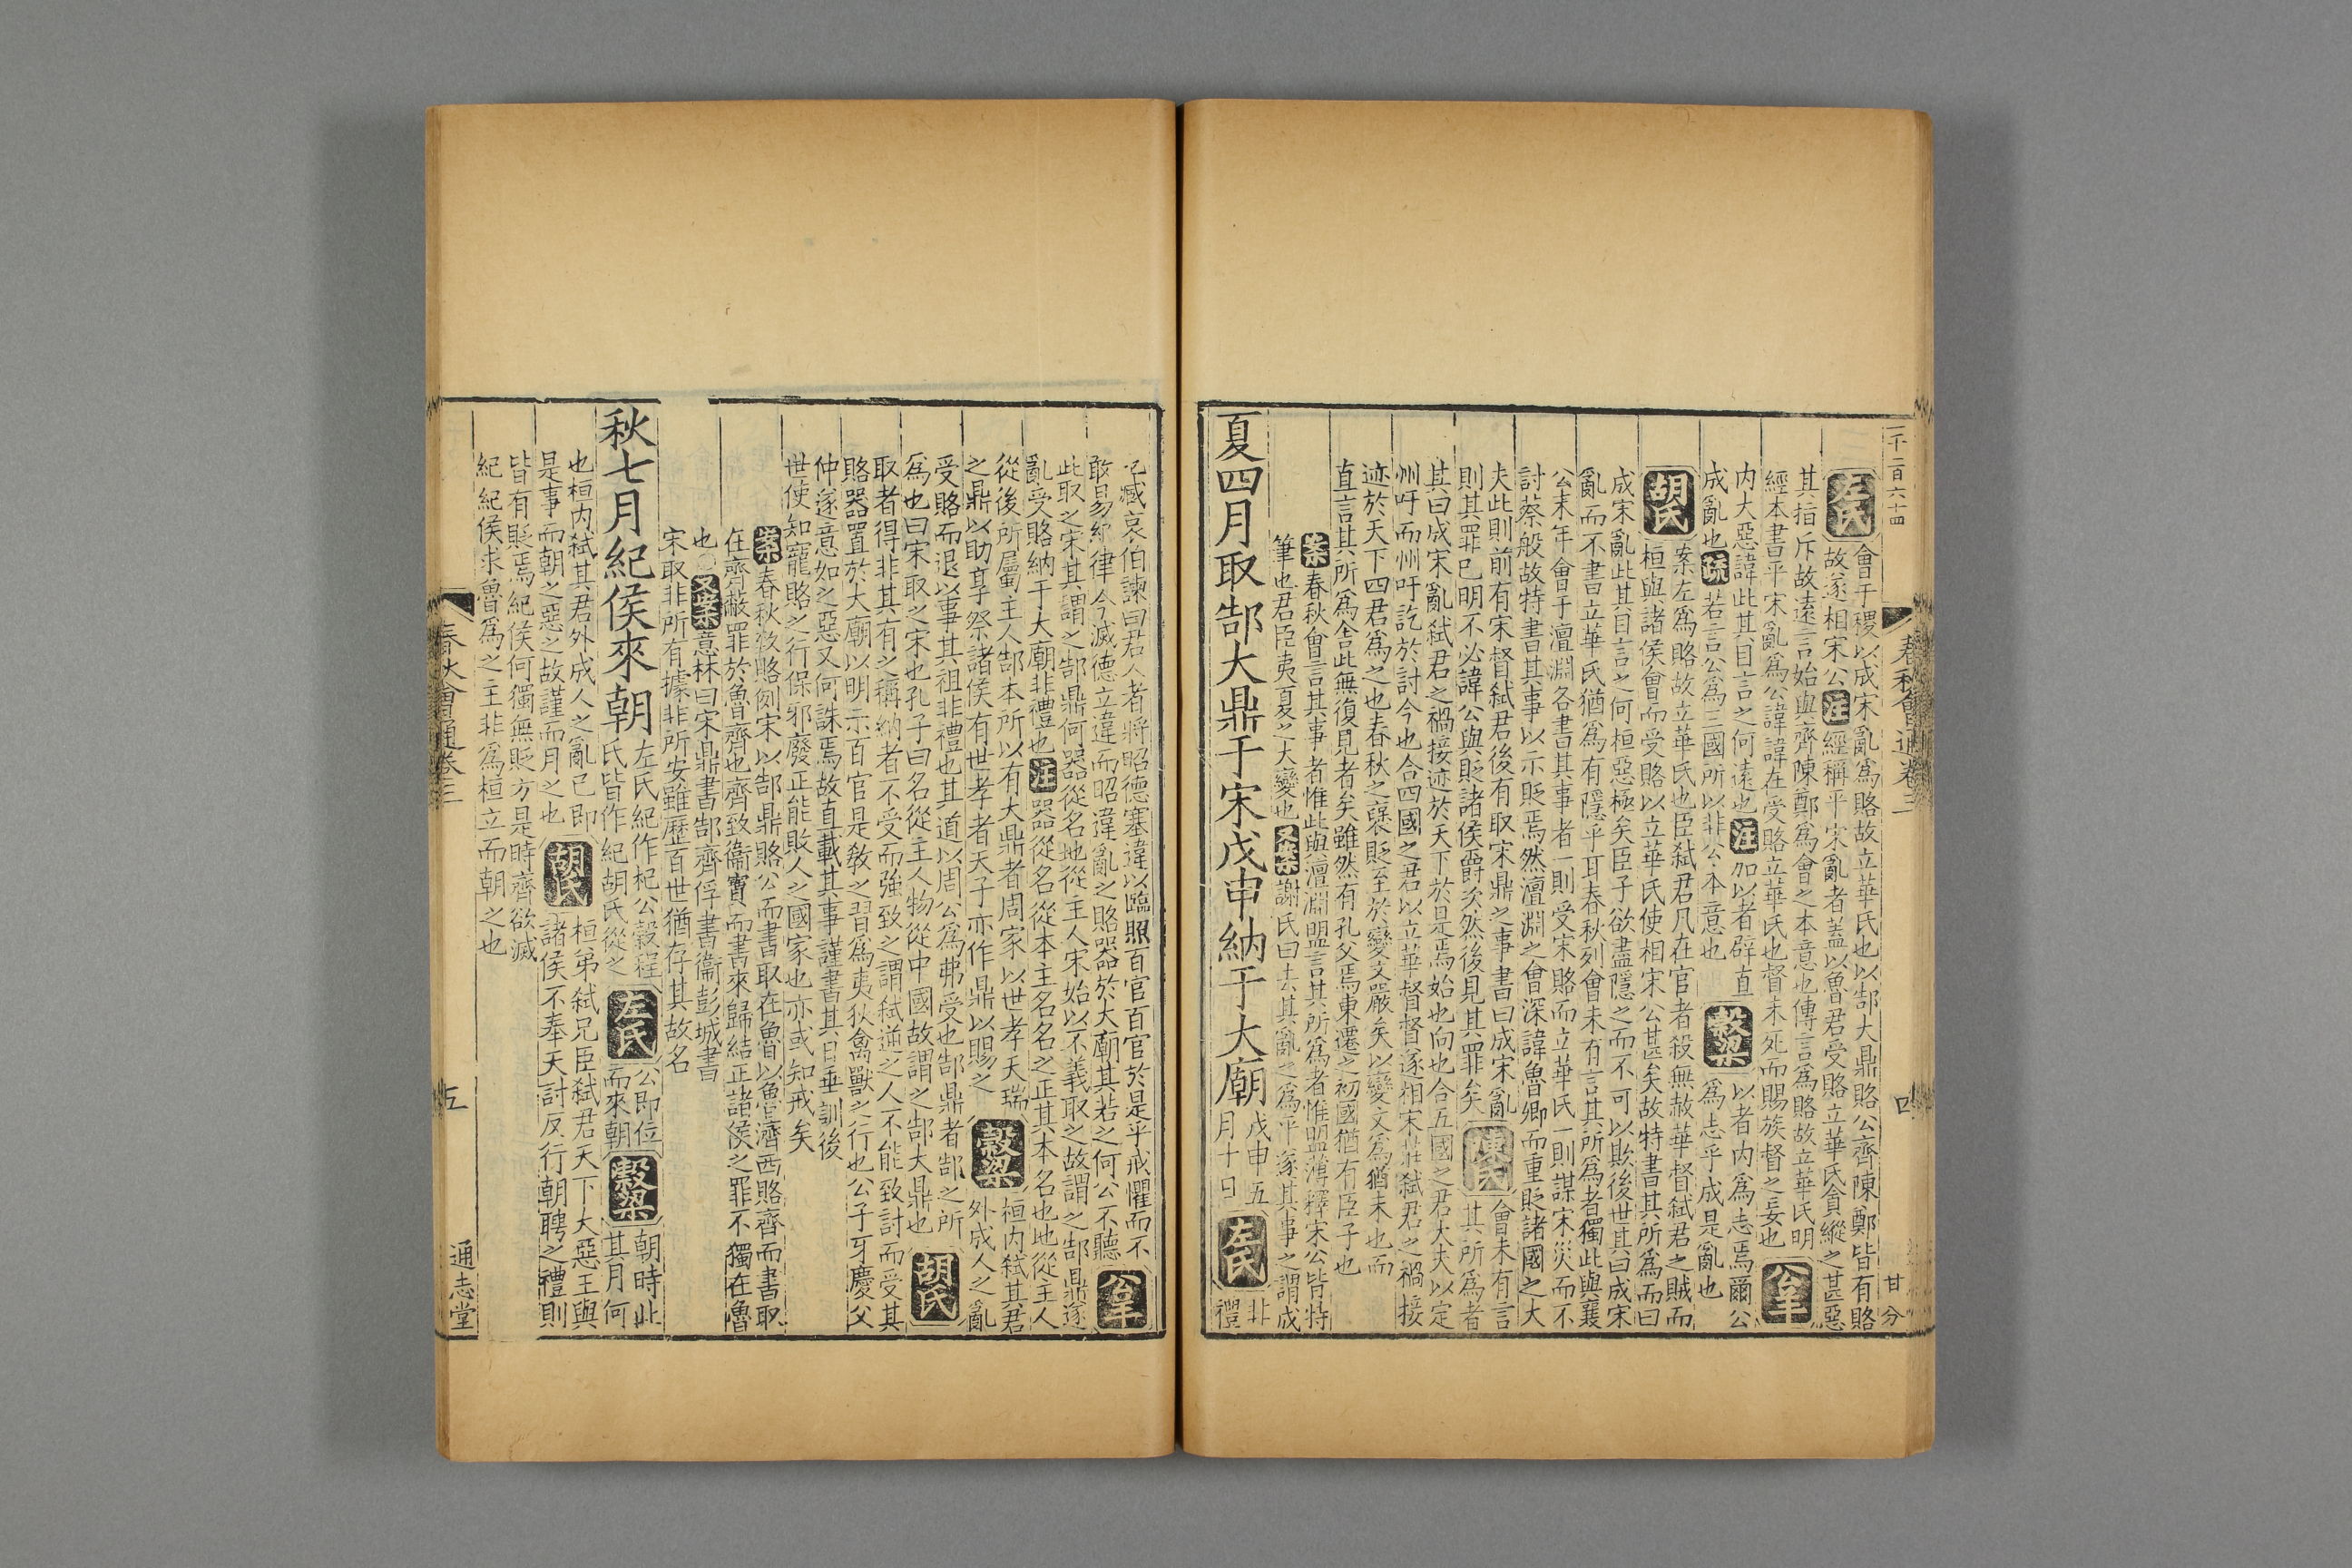 一千一百六十四　春秋會通卷三　四　甘分
左氏　會于稷以成宋亂爲賂故立華氏也以郜大鼎賂公齊陳鄭皆有賂
故遂相宋公　注　經稱平宋亂者蓋以魯君受賂立華氏貪縱之甚惡
其指斥故遠言始與齊陳鄭爲會之本意也傳言爲賂故立華氏明
經本書平宋亂爲公諱諱在受賂立華氏也督未死而賜族督之妄也　公羊
内大惡諱此其目言之何遠也　注　加以者辟直　穀梁　以者内爲志焉爾公
成亂也　疏　若言公爲三國所以非公本意也　爲志乎成是亂也
胡氏　案左爲賂故立華氏也臣弑君凡在官者殺無赦華督弑君之賊而
桓與諸侯會而受賂以立華氏使相宋公甚矣故特書其所爲而曰
成宋亂此其目言之何桓惡極矣臣子欲盡隱之而不可以欺後世其曰成宋
亂而不書立華氏猶爲有隱乎耳春秋列會未有言其所爲者獨此與襄
公末年會于澶淵各書其事者一則受宋賂而立華氏一則謀宋災而不
討蔡般故特書其事以示貶焉然澶淵之會深諱魯卿而重貶諸國之大
夫此則前有宋督弑君後有取宋鼎之事書曰成宋亂　陳氏　會未有言
則其罪已明不必諱公與貶諸侯爵次然後見其罪矣　其所爲者
其曰成宋亂弑君之禍接迹於天下於是焉始也向也合五國之君大夫以定
州吁而州吁訖於討今也合四國之君以立華督督遂相宋莊弑君之禍接
迹於天下四君爲之也春秋之襃貶至於變文嚴矣以變文爲猶未也而
直言其所爲舍此無復見者矣雖然有孔父焉東遷之初國猶有臣子也
案　春秋會言其事者惟此與澶淵盟言其所爲者惟盟薄釋宋公皆特
筆也君臣夷夏之大變也　又案　謝氏曰去其亂之爲平遂其事之謂成
夏四月取郜大鼎于宋戊申納于大廟　戊申五月十日　左氏　非禮
也臧哀伯諫曰君人者將昭德塞違以臨照百官百官於是乎戒懼而不
敢易紀律今滅德立違而昭違亂之賂器於大廟其若之何公不聽　公羊
此取之宋其謂之郜鼎何器從名地從主人宋始以不義取之故謂之郜鼎遂
亂受賂納于大廟非禮也　注　器從名從本主名名之正其本名也地從主人
從後所屬主人郜本所以有大鼎者周家以世孝天瑞　穀梁　桓内弑其君
之鼎以助享祭諸侯有世孝者天子亦作鼎以賜之　外成人之亂
受賂而退以事其祖非禮也其道以周公爲弗受也郜鼎者郜之所
爲也曰宋取之宋也孔子曰名從主人物從中國故謂之郜大鼎也　胡氏
取者得非其有之稱納者不受而強致之謂弑逆之人不能致討而受其
賂器置於大廟以明示百官是敎之習爲夷狄禽獸之行也公子牙慶父
仲遂意如之惡又何誅焉故直載其事謹書其日垂訓後
世使知寵賂之行保邪廢正能敗人之國家也亦或知戒矣
案　春秋敘賂例宋以郜鼎賂公而書取在魯以魯濟西賂齊而書取
在齊蔽罪於魯齊也齊致衞寶而書來歸結正諸侯之罪不獨在魯
也　又案　意林曰宋鼎書郜齊俘書衞彭城書
宋取非所有據非所安雖歷百世猶存其故名
秋七月紀侯來朝　左氏紀作杞公穀程氏皆作紀胡氏從之　左氏　公即位而來朝　穀梁　朝時此其月何
也桓内弑其君外成人之亂已即是事而朝之惡之故謹而月之也　胡氏　桓弟弑兄臣弑君天下大惡王與諸侯不奉天討反行朝聘之禮則
皆有貶焉紀侯何獨無貶方是時齊欲滅
紀紀侯求魯爲之主非爲桓立而朝之也
春秋會通卷三　五　通志堂